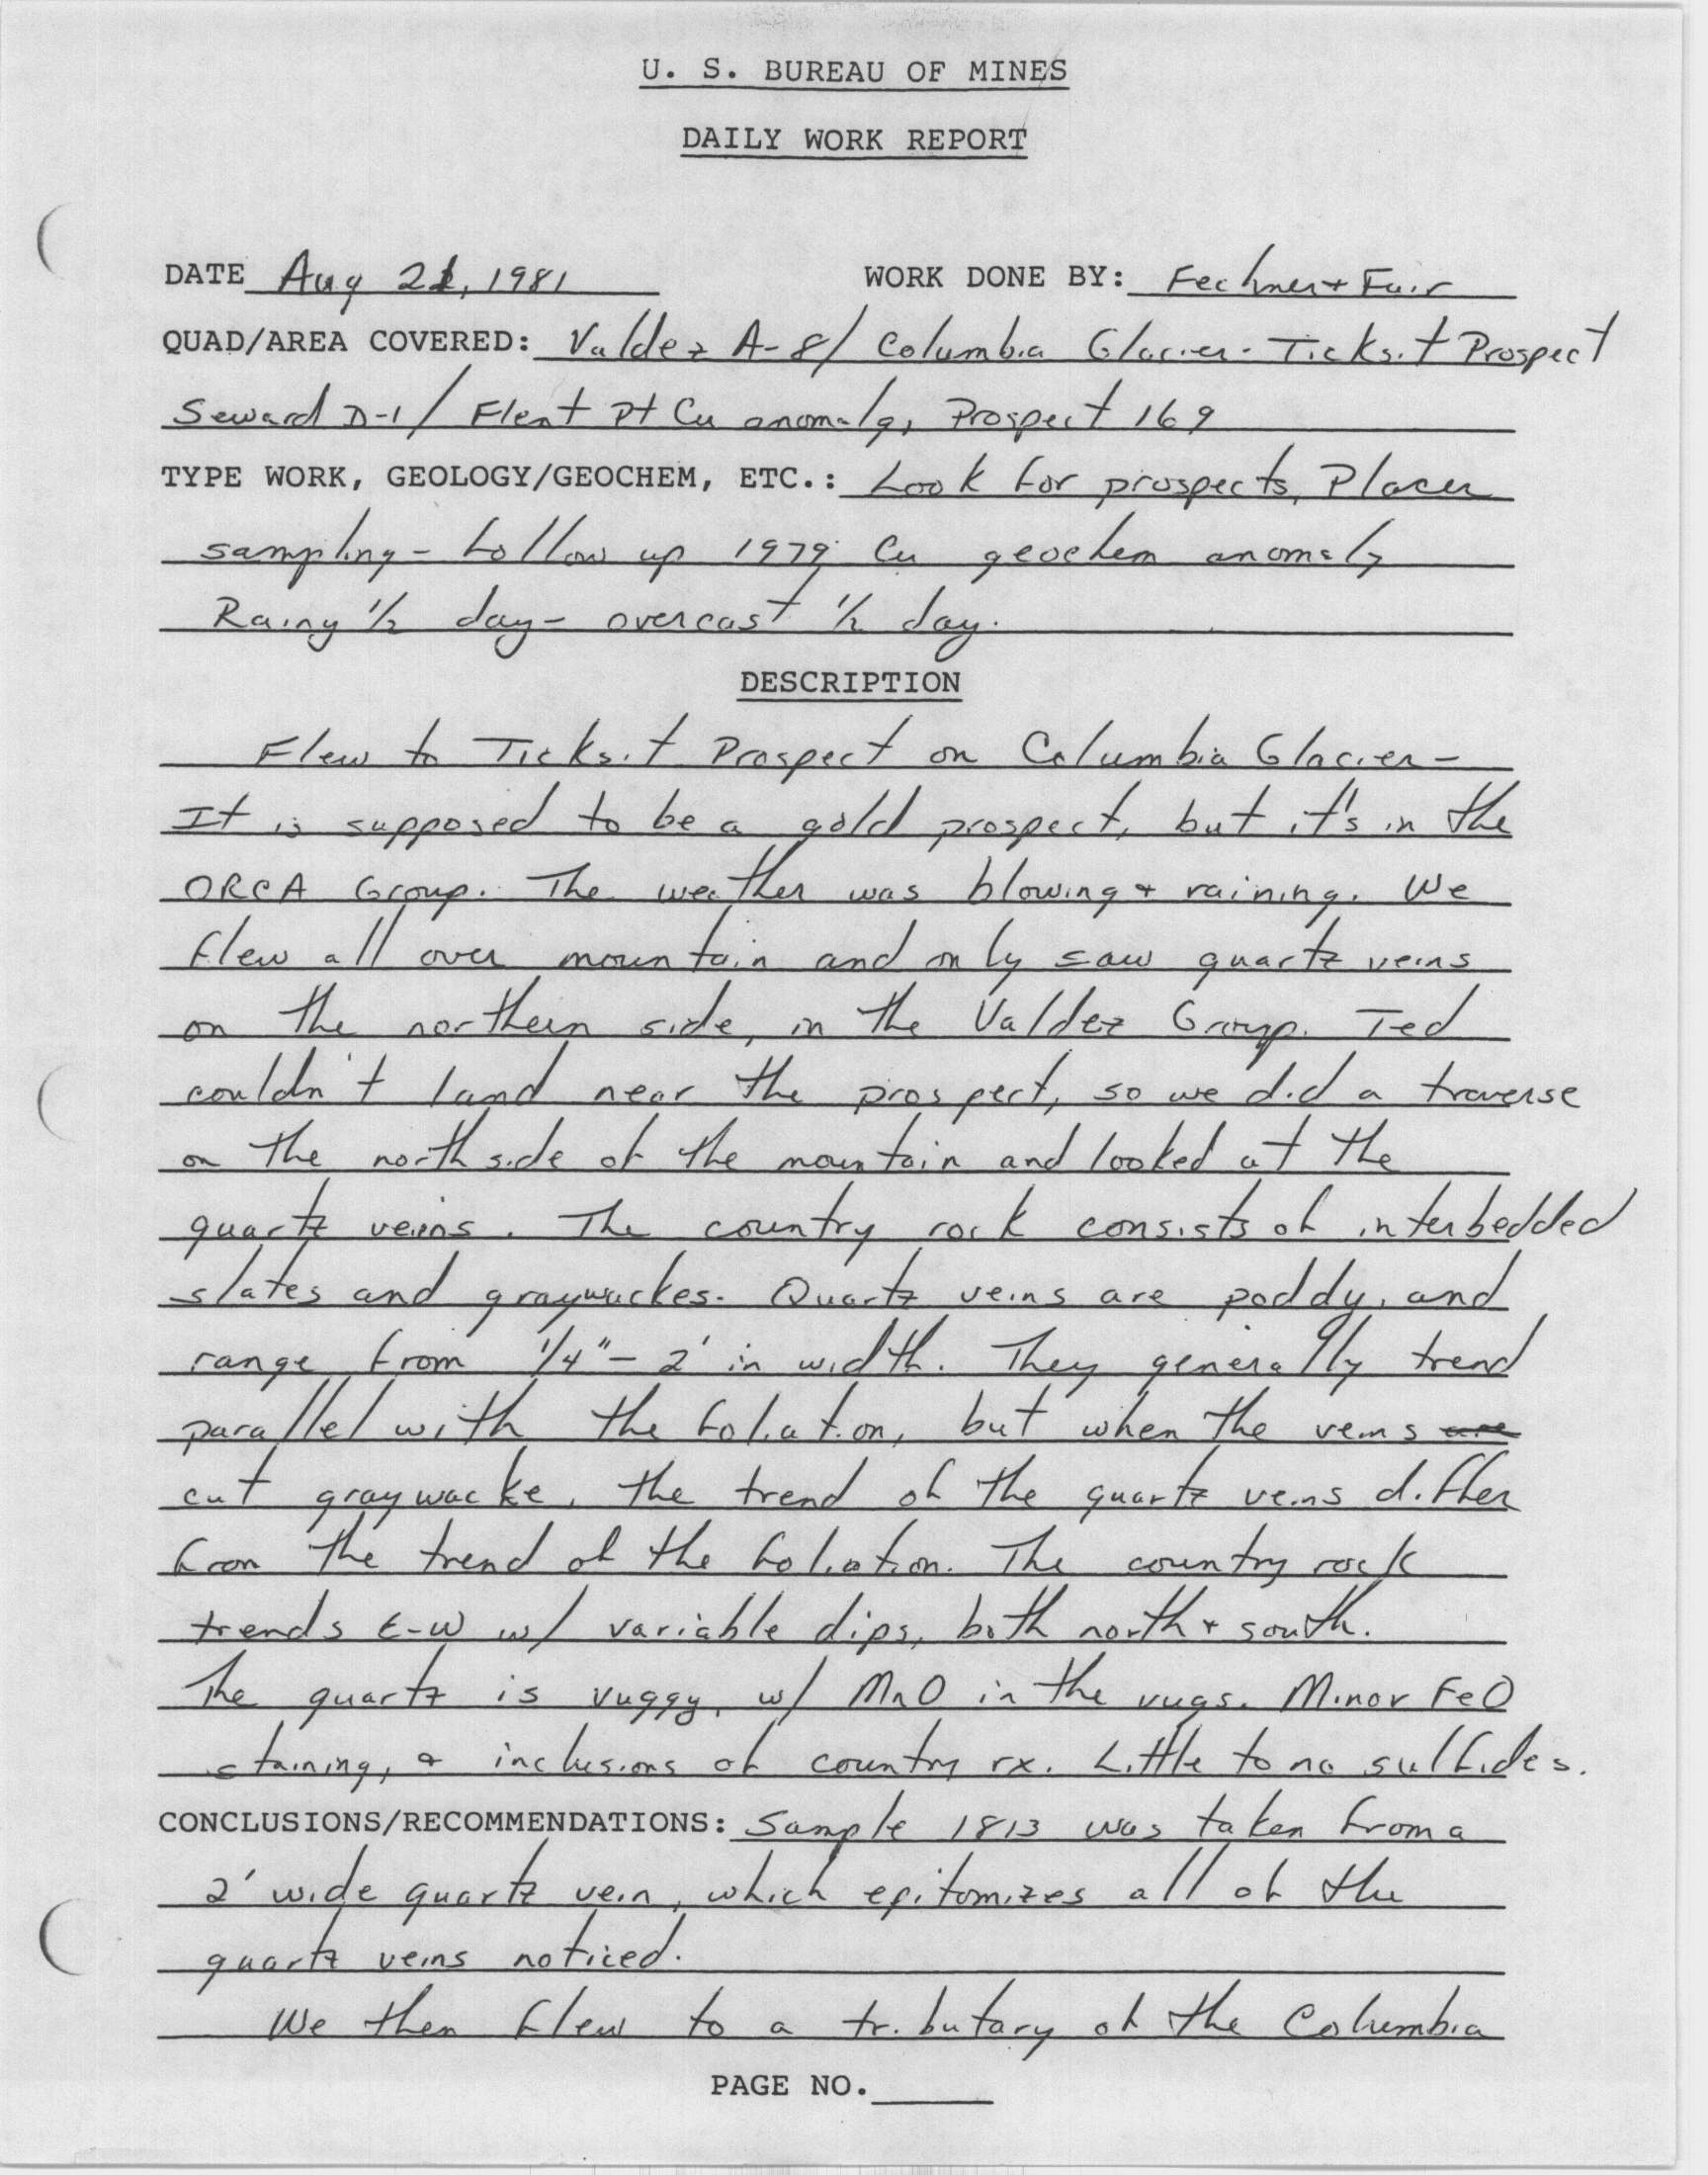 U. S. BUREAU OF MINES
DAILY WORK REPORT
DATE Aug 21, 1981 WORK DONE BY: Fechner + Fair
QUAD/AREA COVERED: Valdez A-8/ Columbia Glacier - Ticksit Prospect
Seward D-1/ Flent Pt Cu anomaly, Prospect 169
TYPE WORK, GEOLOGY/GEOCHEM, ETC.: Look for prospects, Placer
sampling - follow up 1979 Cu geochem anomaly
Rainy 1/2 day - overcast 1/2 day.
DESCRIPTION
Flew to Ticksit Prospect on Columbia Glacier -
It is supposed to be a gold prospect, but it's in the
ORCA Group. The weather was blowing + raining. We
flew all over mountain and only saw quartz veins
on the northern side, in the Valdez Group. Ted
couldn't land near the prospect, so we did a traverse
on the north side of the mountain and looked at the
quartz veins. The country rock consists of interbedded
slates and graywackes. Quartz veins are poddy, and
range from 1/4" - 2' in width. They generally trend
parallel with the foliation, but when the veins are
cut graywacke, the trend of the quartz veins differ
from the trend of the foliation. The country rock
trends E-W w/ variable dips, both north + south.
The quartz is vuggy, w/ MnO in the vugs. Minor FeO
staining, + inclusions of country rx. Little to no sulfides.
CONCLUSIONS/RECOMMENDATIONS: Sample 1813 was taken from a
2' wide quartz vein, which epitomizes all of the
quartz veins noticed.
We then flew to a tributary of the Columbia
PAGE NO.